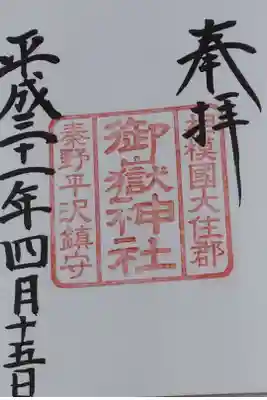 奉拝
相模国大住郡
御嶽神社
秦野平沢鎮守
平成三十一年四月十五日